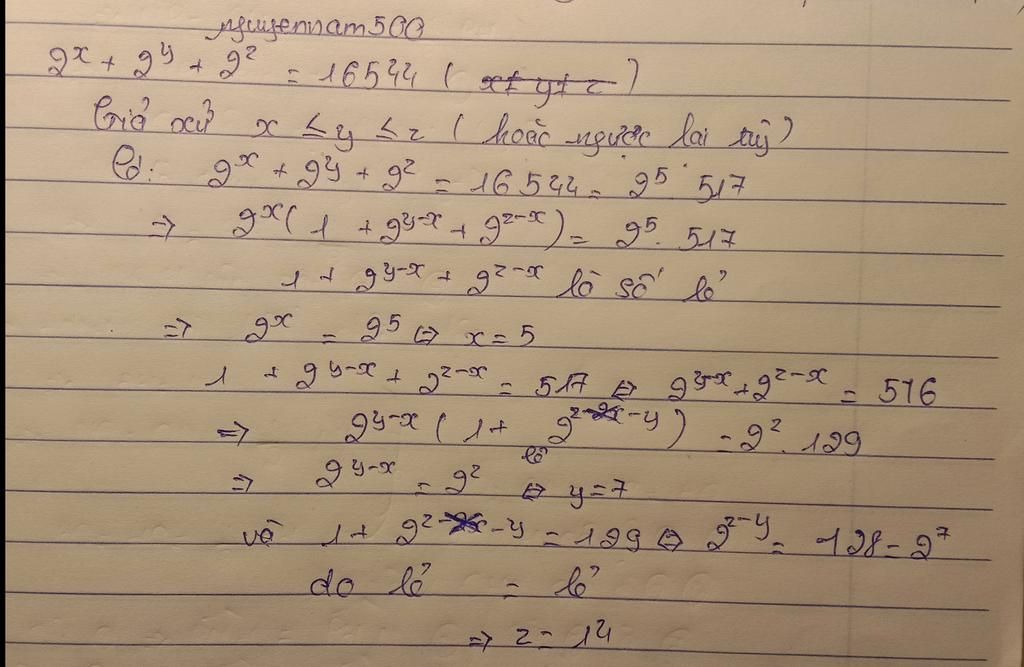 nguyennam500
2^x + 2^y + 2^z = 16544 ( x ≠ y ≠ z )
Giả xử x ≤ y ≤ z ( hoặc ngược lại tuỳ )
Có: 2^x + 2^y + 2^z = 16544 = 2^5 . 517
⇒ 2^x ( 1 + 2^{y-x} + 2^{z-x} ) = 2^5 . 517
1 + 2^{y-x} + 2^{z-x} là số lẻ
⇒ 2^x = 2^5 ⇔ x = 5
1 + 2^{y-x} + 2^{z-x} = 517 ⇔ 2^{y-x} + 2^{z-x} = 516
⇒ 2^{y-x} ( 1 + 2^{z-y} ) = 2^2 . 129
lẻ
⇒ 2^{y-x} = 2^2 ⇔ y = 7
và 1 + 2^{z-y} = 129 ⇔ 2^{z-y} = 128 = 2^7
do lẻ = lẻ
⇒ z = 14